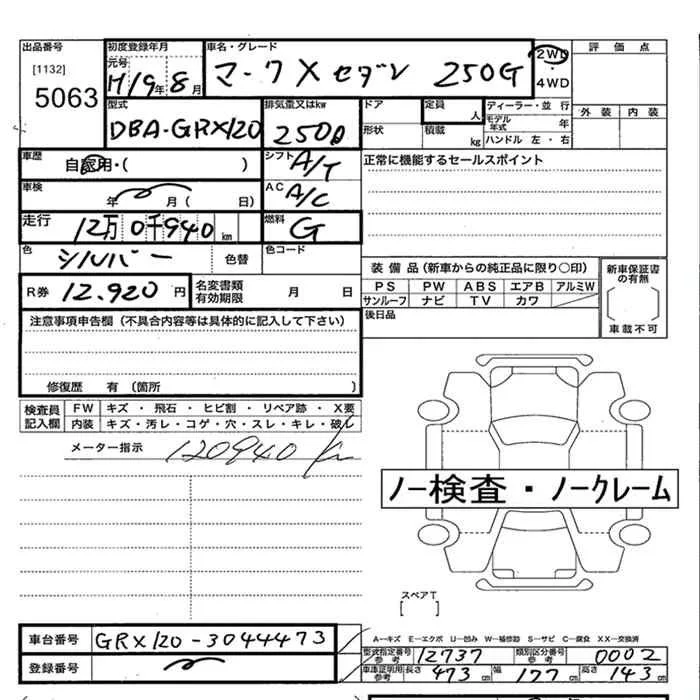 出品番号 初度登録年月 車名・グレード 2WD 評価点
[1132] 元号 ・
5063 H19年8月 マークXセダン 250G 4WD
外装 内装
型式 排気量又はkw ドア 定員 人 ディーラー・並行
DBA-GRX120 2500 形状 積載 kg モデル年式 年
ハンドル 左・右
車歴 自家用・( ) シフト A/T 正常に機能するセールスポイント
車検 年 月( 日) AC A/C
走行 12万0千940km 燃料 G
色 シルバー 色替 色コード
装備品(新車からの純正品に限り○印) 新車保証書の有無
R券 12.920円 名変書類有効期限 月 日 PS PW ABS エアB アルミW
サンルーフ ナビ TV カワ
注意事項申告欄(不具合内容等は具体的に記入して下さい) 後日品 車載不可
修復歴 有(箇所 )
検査員 FW キズ・飛石・ヒビ割・リペア跡・X要
記入欄 内装 キズ・汚レ・コゲ・穴・スレ・キレ・破レ
メーター指示 120940 km
ノー検査・ノークレーム
スペアT
[ ]
車台番号 GRX120-3044473 A―キズ E―エクボ U―凹み W―補修跡 S―サビ C―腐食 XX―交換済
登録番号 型式指定番号参考 12737 類別区分番号参考 0002
車庫証明用参考 長さ 473cm 幅 177cm 高さ 143cm